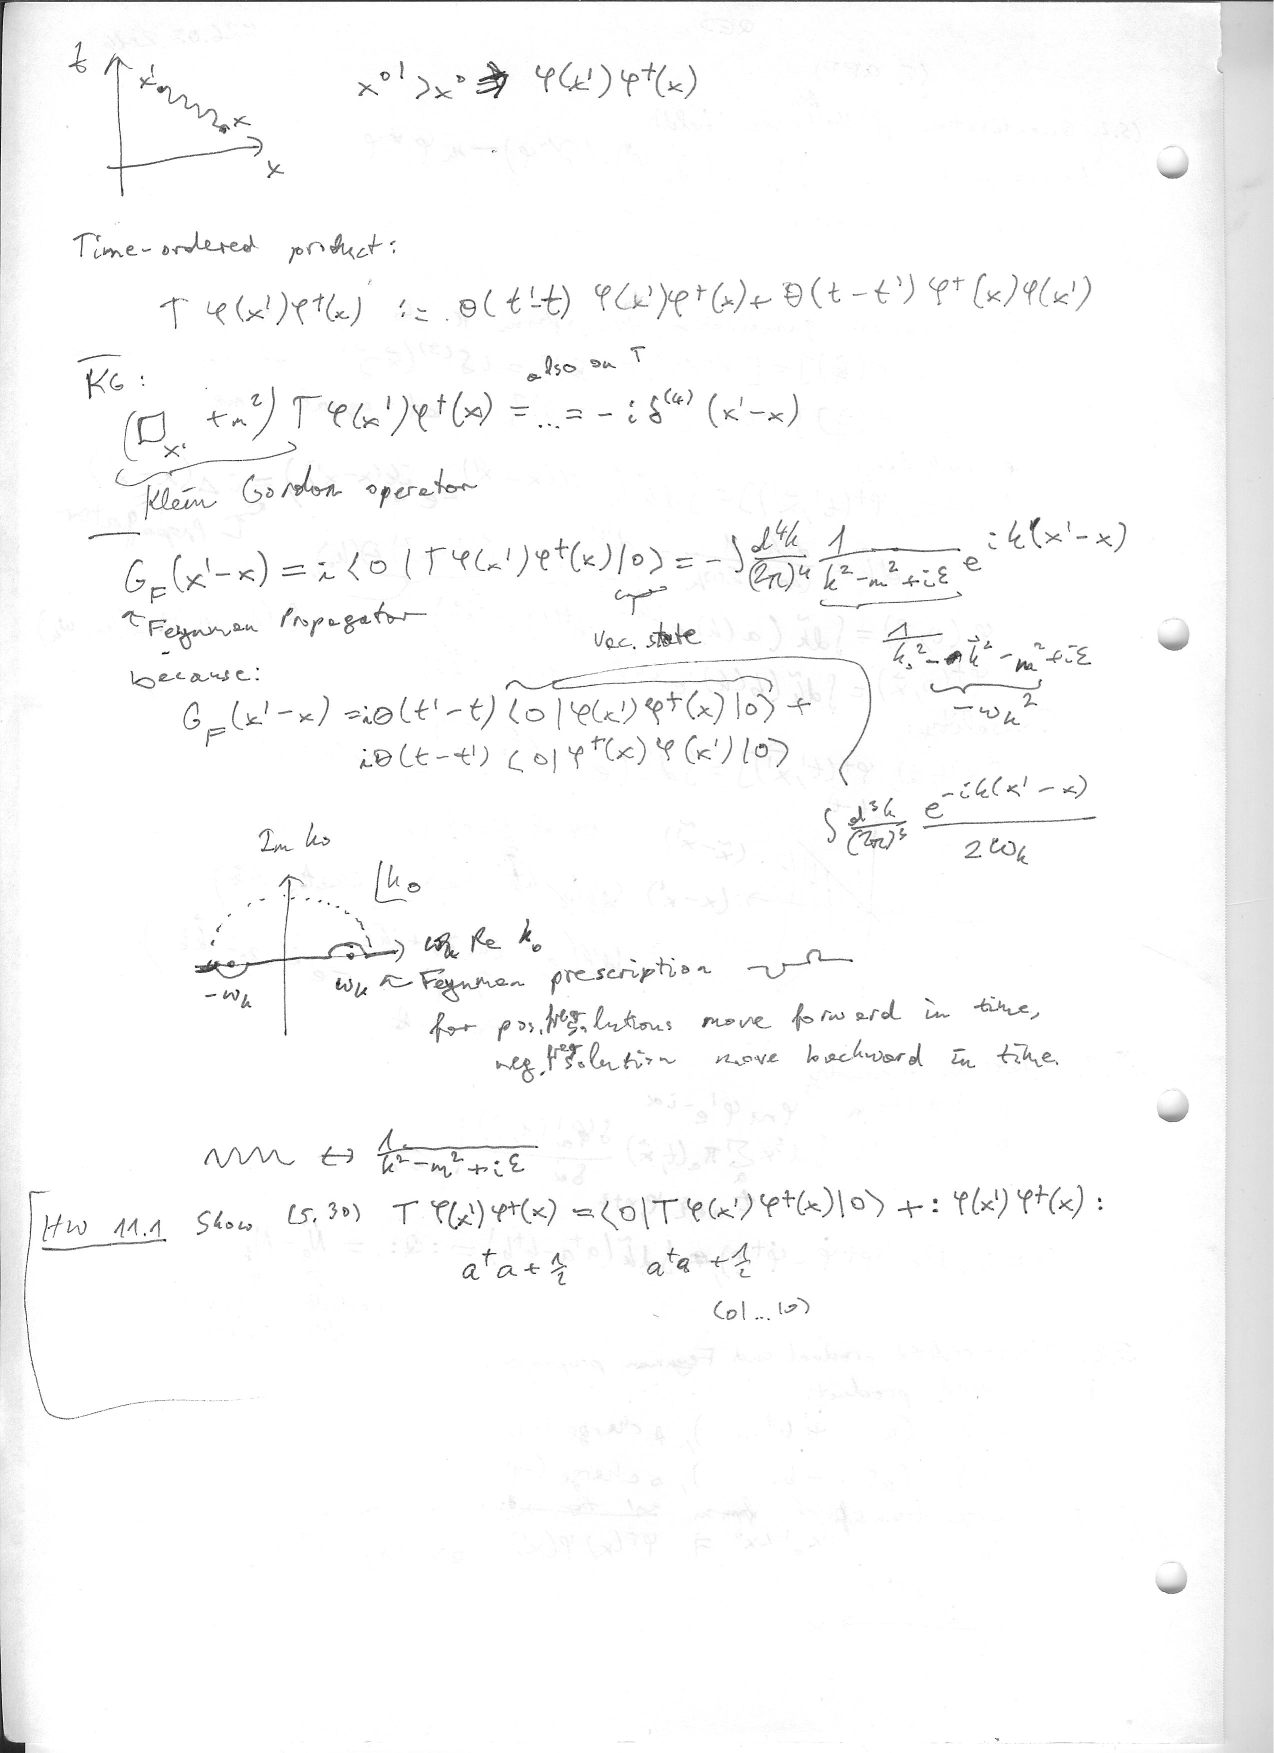 t
x'
x
x
x⁰' > x⁰ ⇒ φ(x')φ†(x)
Time-ordered product:
T φ(x')φ†(x) := θ(t'-t) φ(x')φ†(x) + θ(t-t') φ†(x)φ(x')
KG:
also on T
(□ₓ' + m²) T φ(x')φ†(x) = ... = -i δ⁽⁴⁾(x'-x)
Klein Gordon operator
G_F(x'-x) = i ⟨0|T φ(x')φ†(x)|0⟩ = -∫ d⁴k/(2π)⁴ 1/(k²-m²+iε) e^{ik(x'-x)}
Feynman Propagator
vac. state
1/(k₀² - k⃗² - m² + iε)
-ω_k²
because:
G_F(x'-x) = iθ(t'-t) ⟨0|φ(x')φ†(x)|0⟩ +
iθ(t-t') ⟨0|φ†(x)φ(x')|0⟩
∫ d³k/(2π)³ e^{-ik(x'-x)}/2ω_k
Im k₀
k₀
Re k₀
-ω_k
ω_k Feynman prescription
for pos. freq. solutions move forward in time,
neg. freq. solution move backward in time.
↔ 1/(k²-m²+iε)
HW 11.1 Show (5.30) T φ(x')φ†(x) = ⟨0|T φ(x')φ†(x)|0⟩ + : φ(x')φ†(x) :
a†a + 1/2 a†a + 1/2
⟨0|...|0⟩